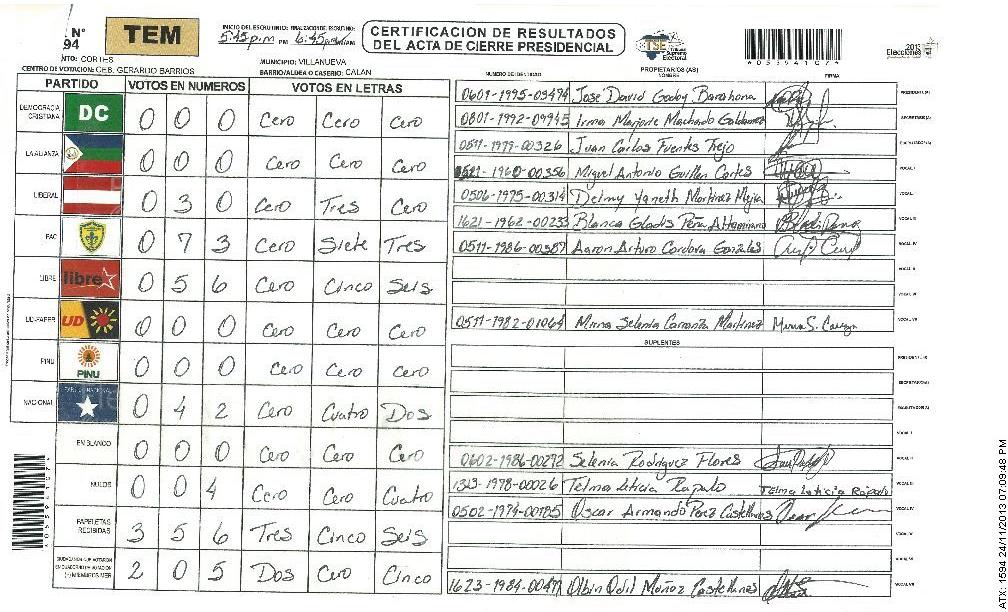 N°
94
TEM
INICIO DEL ESCRUTINIO: FINALIZACION DE ESCRUTINIO:
5:45 p.m PM 6:45 p.m AM/PM
CERTIFICACIÓN DE RESULTADOS
DEL ACTA DE CIERRE PRESIDENCIAL
TSE Tribunal Supremo Electoral
2013
Elecciones
NTO: CORTES
MUNICIPIO: VILLANUEVA
CENTRO DE VOTACION: CEB. GERARDO BARRIOS
BARRIO/ALDEA O CASERIO: CALAN
PARTIDO VOTOS EN NUMEROS VOTOS EN LETRAS
DEMOCRACIA CRISTIANA DC 0 0 0 Cero Cero Cero
LA ALIANZA 0 0 0 Cero Cero Cero
LIBERAL 0 3 0 Cero Tres Cero
PAC 0 7 3 Cero Siete Tres
LIBRE libre 0 5 6 Cero Cinco Seis
UD-FAPER UD 0 0 0 Cero Cero Cero
PINU PINU 0 0 0 Cero Cero Cero
NACIONAL 0 4 2 Cero Cuatro Dos
EN BLANCO 0 0 0 Cero Cero Cero
NULOS 0 0 4 Cero Cero Cuatro
PAPELETAS RECIBIDAS 3 5 6 Tres Cinco Seis
2 0 5 Dos Cero Cinco
NUMERO DE IDENTIDAD PROPIETARIOS (AS) NOMBRE FIRMA
0601-1995-03494 Jose David Godoy Barahona PRESIDENTE(A)
0801-1992-09945 Irma Marjorie Machado Galdamez SECRETARIO(A)
0511-1979-00326 Juan Carlos Fuentes Trejo ESCRUTADOR(A)
1960-00356 Miguel Antonio Guillen Cortes VOCAL I
0506-1975-00314 Delmy Yaneth Martinez Mejia VOCAL II
1621-1962-00233 Blanca Gladis Peña Altamirano VOCAL III
0511-1986-00387 Aaron Arturo Cordova Gonzales VOCAL IV
VOCAL V
VOCAL VI
0511-1982-01064 Mirna Selenia Carranza Martinez Mirna S. Carranza VOCAL VII
SUPLENTES
PRESIDENTE(A)
SECRETARIO(A)
ESCRUTADOR(A)
VOCAL I
0602-1986-00272 Selenia Rodriguez Flores VOCAL II
1313-1978-00026 Telma Leticia Rapalo Telma Leticia Rápalo VOCAL III
0502-1974-00185 Oscar Armando Perez Castellanos VOCAL IV
VOCAL V
VOCAL VI
1623-1984-00471 Olbin Odil Muñoz Castellanos VOCAL VII
ATX: 1594 24/11/2013 07:09:48 PM